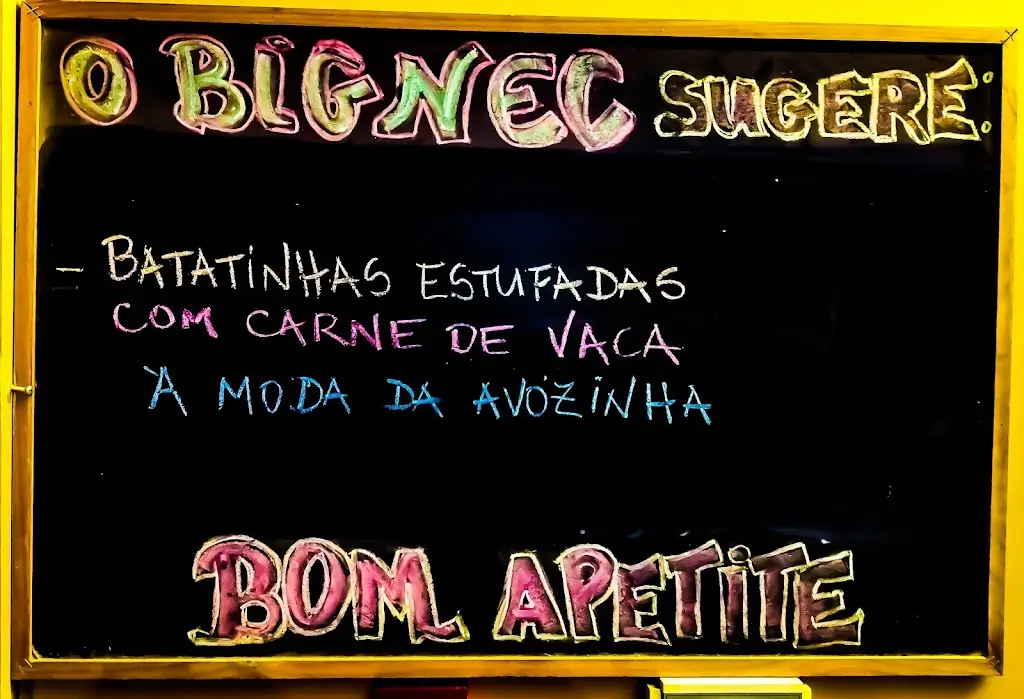 O BIGNEC SUGERE:
- BATATINHAS ESTUFADAS
COM CARNE DE VACA
À MODA DA AVÓZINHA
BOM APETITE